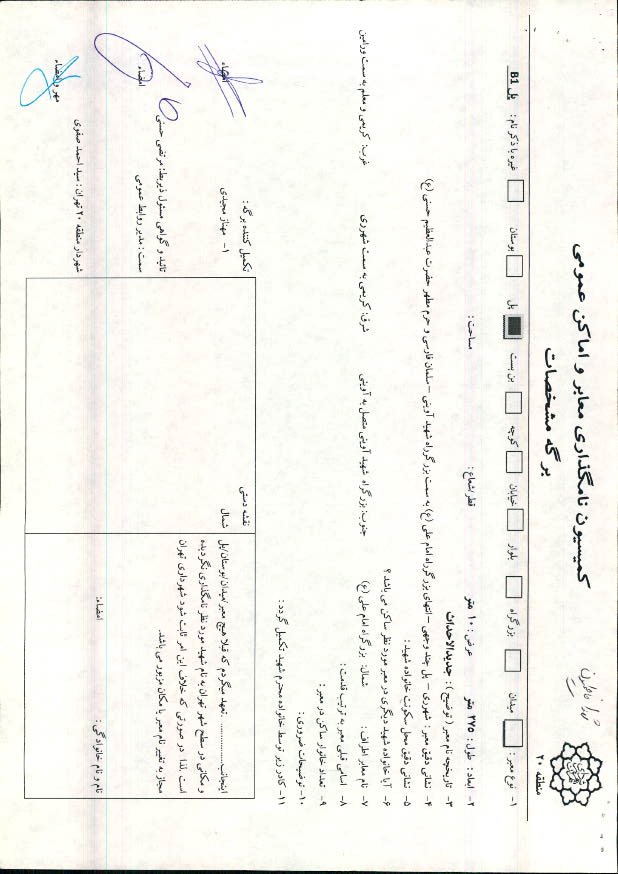 کمیسیون نامگذاری معابر و اماکن عمومی
برگه مشخصات
منطقه ۲۰
۱- نوع معبر : میدان بزرگراه بلوار خیابان کوچه بن بست پل بوستان غیره با ذکر نام : پل B1
۲- ابعاد : طول : ۲۷۵ متر عرض : ۱۰ متر قطر/شعاع : مساحت :
۳- تاریخچه نام معبر ( توضیح ) : جدیدالاحداث
۴- نشانی دقیق معبر : شهرری – پل چند وجهی – انتهای بزرگراه امام علی (ع) به سمت بزرگراه شهید آوینی – سلمان فارسی و حرم مطهر حضرت عبدالعظیم حسنی (ع)
۵- نشانی دقیق محل سکونت خانواده شهید :
۶- آیا خانواده شهید دیگری در معبر مورد نظر ساکن می باشد ؟
۷- نام معابر اطراف : شمال: بزرگراه امام علی (ع) جنوب: بزرگراه شهید آوینی متصل به آوینی شرق: کریمی به سمت شهرری غرب: کریمی و معلم به سمت ورامین
۸- اسامی قبلی معبر به ترتیب قدمت :
۹- تعداد خانوار ساکن در معبر :
۱۰- توضیحات ضروری :
۱۱- کادر زیر توسط خانواده محترم شهید تکمیل گردد :
اینجانب .................... تعهد میگردم که قبلا هیچ معبر/میدان/بوستان/پل
و مکانی در سطح شهر تهران به نام شهید مورد نظر نامگذاری نگردیده
است لذا در صورتی که خلاف این امر ثابت شود شهرداری تهران
مجاز به تغییر نام معبر یا مکان مزبور می باشد.
نام و نام خانوادگی : امضاء:
نقشه دستی
شمال
تکمیل کننده برگه :
۱- مهناز مجیدی امضاء
تائید و گواهی مسئول ذیربط: مرتضی حسنی
سمت : مدیر روابط عمومی امضاء
شهردار منطقه ۲۰ تهران : سید احمد صفوی مهر و امضاء